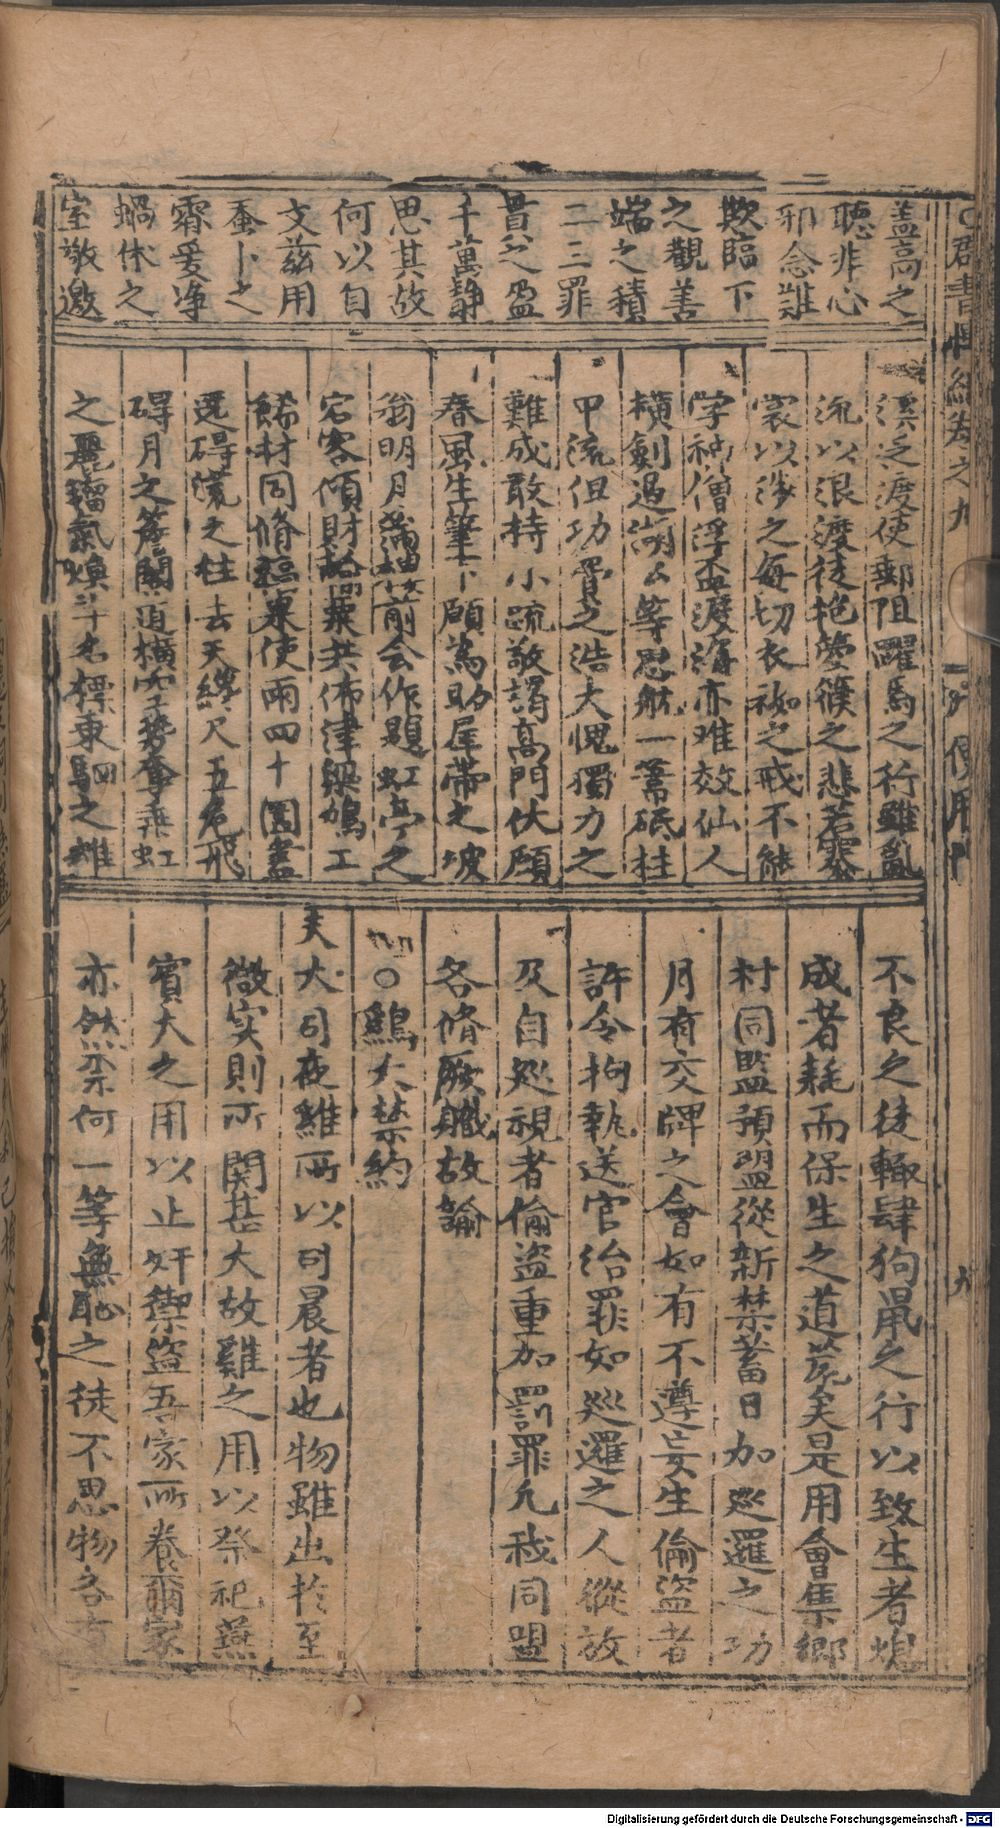 蓋高之
聽非心
邪念難
欺臨下
之觀善
端之積
二三罪
昔之盈
千萬靜
思其故
何以自
文茲用
蚕卜之
齋爰净
蝸休之
室敬邀
溪乏渡使郵阻躍馬之行雖亂
流以浪渡徒抱
裳以涉之每切衣袽之戒不能
学神僧浮盃渡海亦难效仙人
横劍過湖公等慰航一筹砥柱
中流但功費之浩大愧獨力之
難成敢持小疏敬謁高門伏願
春風生筆下願為助犀帶之坡
翁明月滿前会作題虹亭之
宕客傾財發粟共佈津梁鳩工
材同脩福東使兩四十圓蓋
選碍漢之柱去天纔尺五危飛
碍月之道橫空勢奪垂虹
之麗氣煥斗名標東駟之雄
不良之徒輙肆狗鼠之行以致生者熄
成者耗而保生之道荒矣是用會集鄉
村同監預盟從新禁蓄日加巡邏之功
月有交牌之會如有不遵妄生偷盜者
許令拘執送官治罪如巡邏之人縱放
及自巡視者偷盜重加罰罪凡我同盟
各脩厥職故諭
○鷄犬禁約
夫犬司夜雞所以司晨者也物雖出於至
微实則所関甚大故雞之用以祭祀燕
賓犬之用以止奸禦盜吾家所養爾家
亦然柰何一等無恥之徒不思物各有
群書 卷之九
門
九
Digitalisierung gefördert durch die Deutsche Forschungsgemeinschaft - DFG